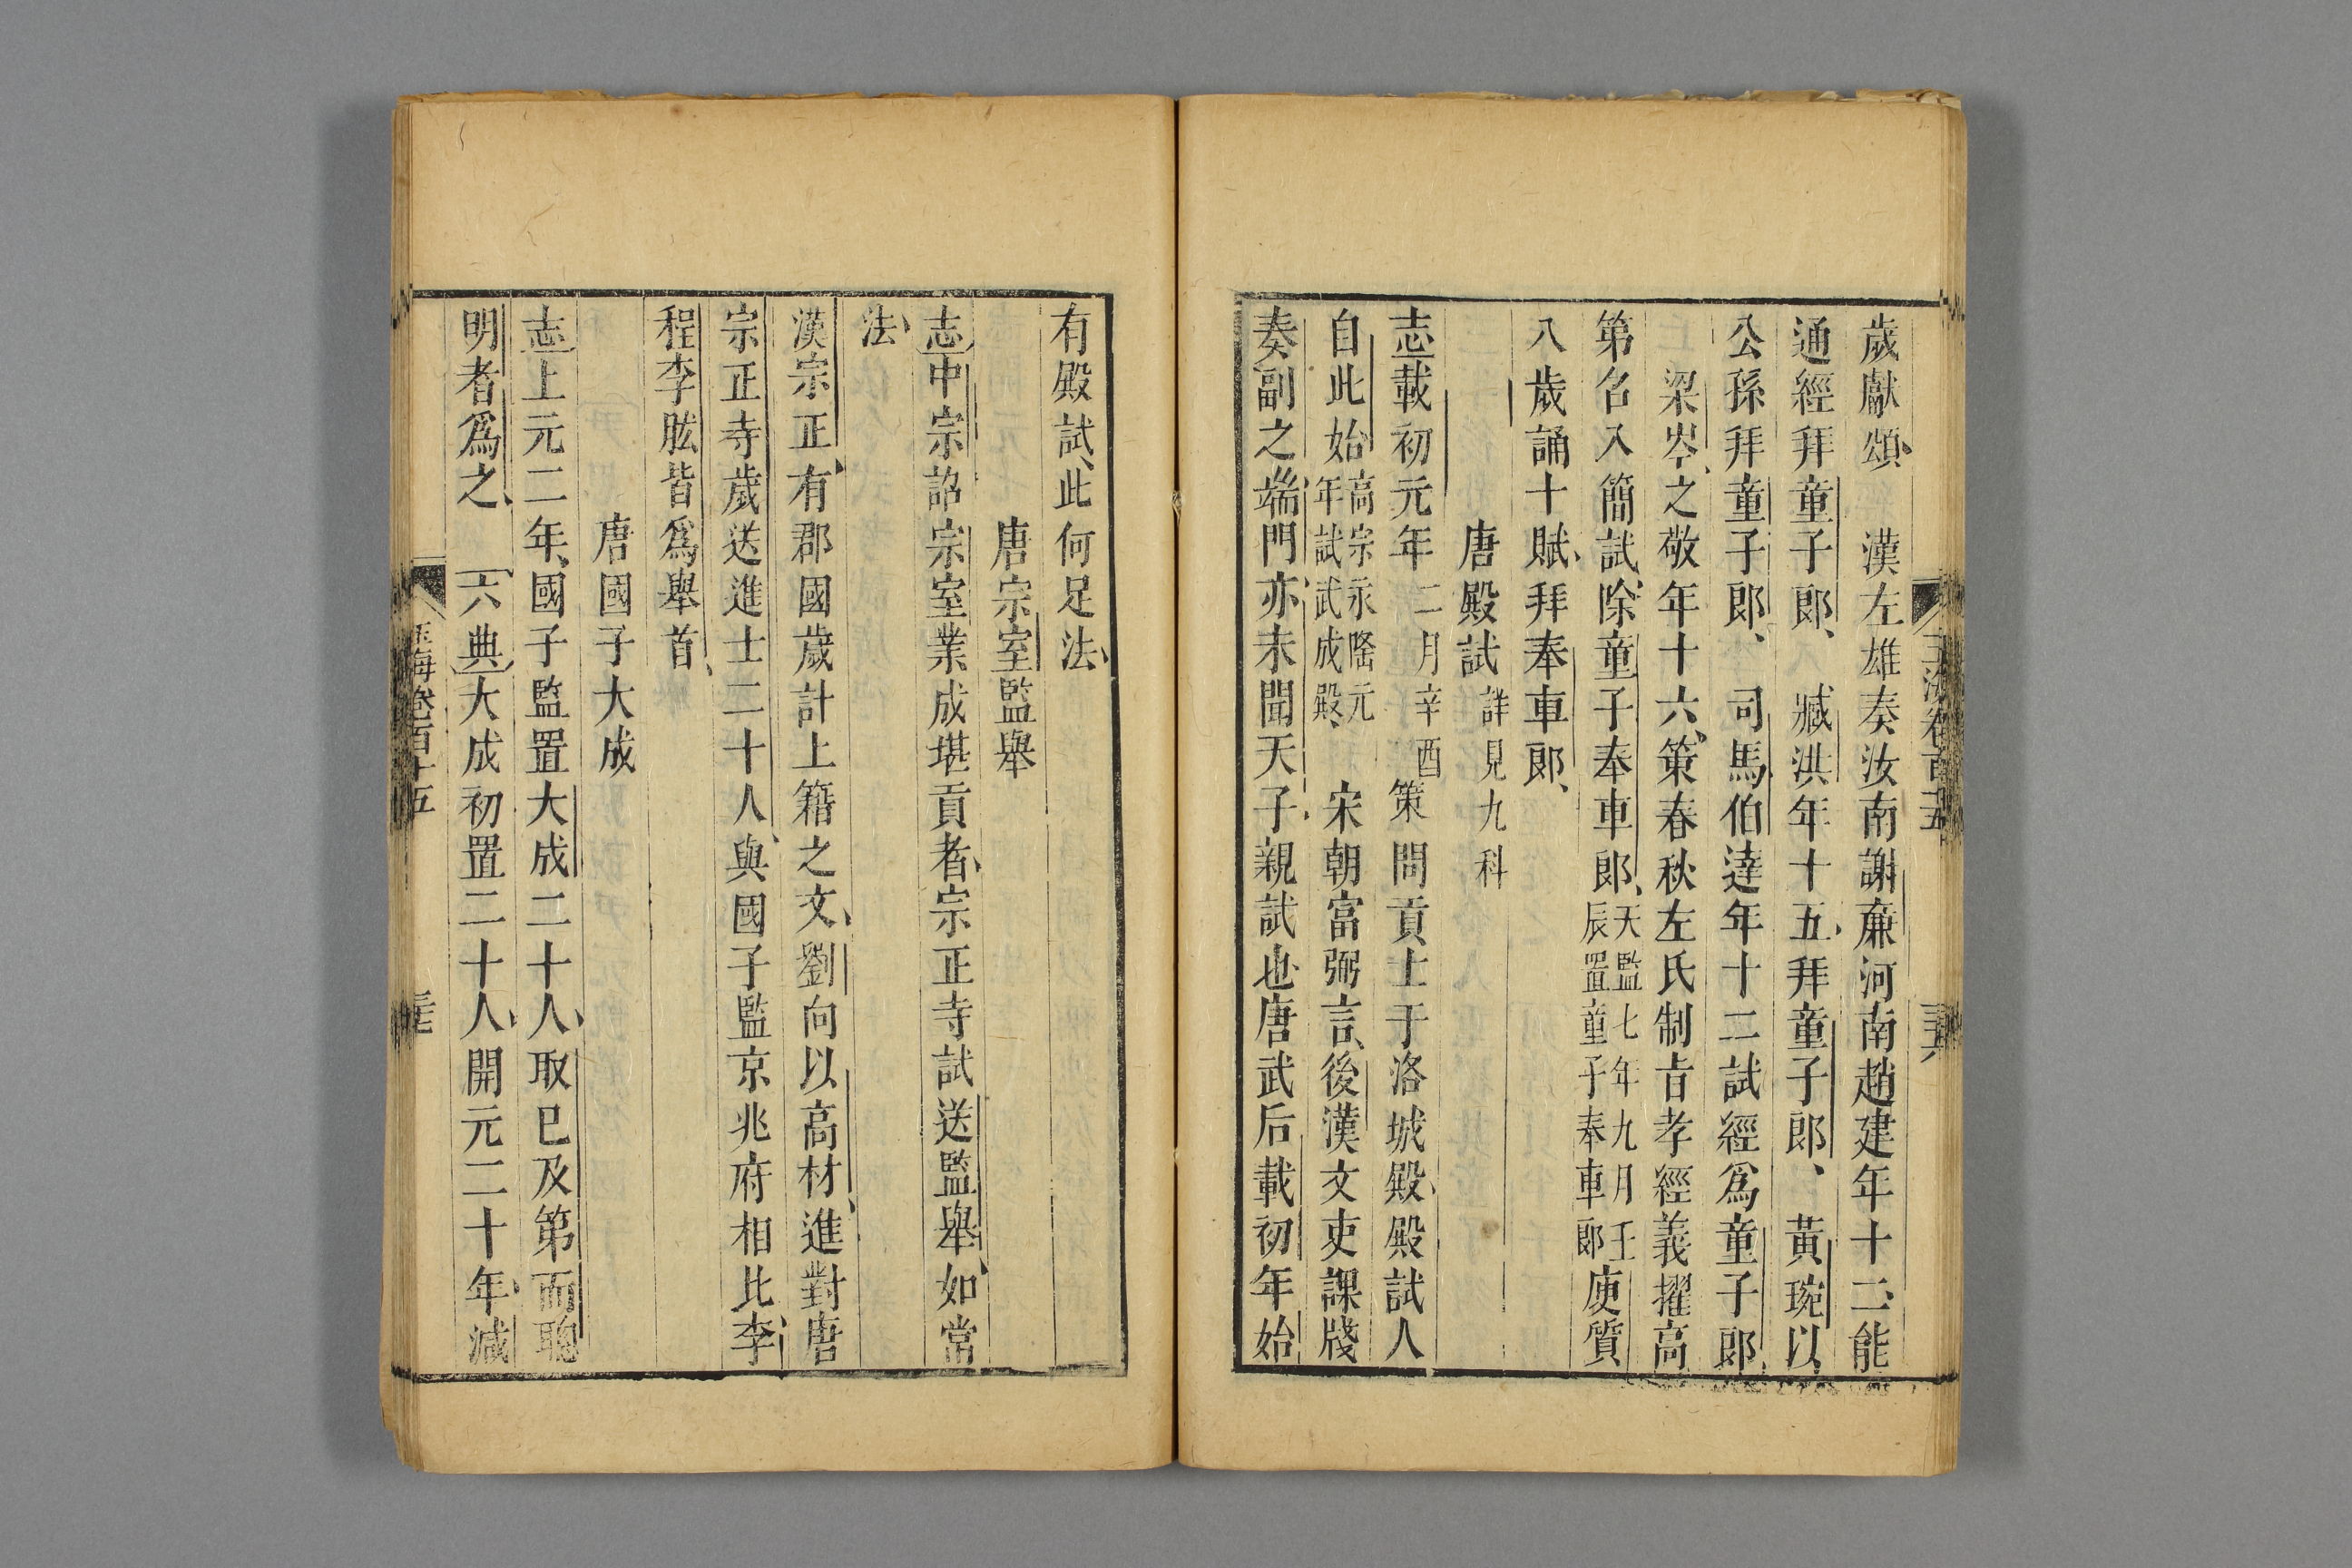 玉海卷百十五 三十六
歲獻頌 漢左雄奏汝南謝廉河南趙建年十二能
通經拜童子郎 臧洪年十五拜童子郎 黃琬以
公孫拜童子郎 司馬伯達年十二試經爲童子郎
梁岑之敬年十六策春秋左氏制旨孝經義擢高
第名入簡試除童子奉車郎天監七年九月壬辰置童子奉車郎 庾質
八歲誦十賦拜奉車郎
唐殿試詳見九科
志載初元年二月辛酉策問貢士于洛城殿殿試人
自此始高宗永隆元年試武成殿 宋朝富弼言後漢文吏課牋
奏副之端門亦未聞天子親試也唐武后載初年始
有殿試此何足法
唐宗室監舉
志中宗詔宗室業成堪貢者宗正寺試送監舉如常
法
漢宗正有郡國歲計上籍之文劉向以高材進對唐
宗正寺歲送進士二十人與國子監京兆府相比李
程李肱皆爲舉首
唐國子大成
志上元二年國子監置大成二十人取已及第而聰
明者爲之 六典大成初置二十人開元二十年減
玉海卷百十五 三十七